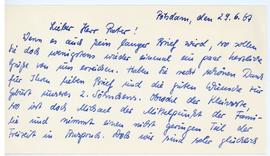 Potsdam, den 29.6.67
Lieber Herr Pater!
Wenn es auch kein langer Brief wird, so sollen
Sie doch wenigstens wieder einmal ein paar herzliche
Grüße von uns erreichen. Haben Sie recht schönen Dank
für Ihren lieben Brief und die guten Wünsche zur
Geburt unseres 2. Söhnchens. Obwohl der Kleinste,
so ist doch Michael der Mittelpunkt der Fami-
lie und nimmt einen nicht geringen Teil der
Freizeit in Anspruch. Doch wir sind voller glückes